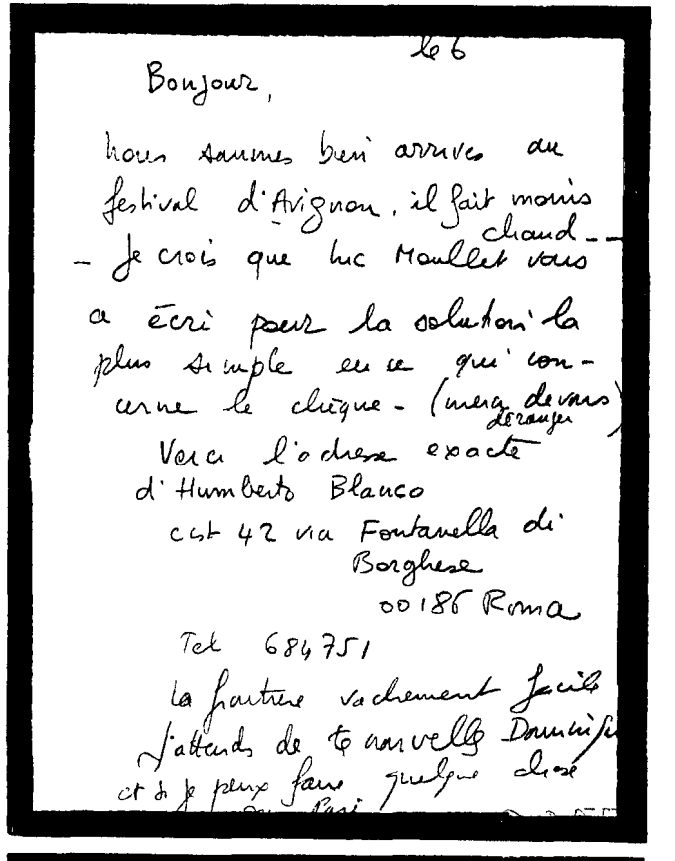 le 6
Bonjour,
nous sommes bien arrivés au
festival d'Avignon, il fait moins
chaud --
- Je crois que Luc Moullet vous
a écri pour la solution la
plus simple en ce qui con-
cerne le chèque - (merci de vous
déranger)
Voici l'adresse exacte
d'Humberto Blanco
cst 42 via Fontanella di
Borghese
00186 Roma
Tel 684751
la frontière vachement facile
J'attends de te nouvelle
et si je peux faire quelque chose